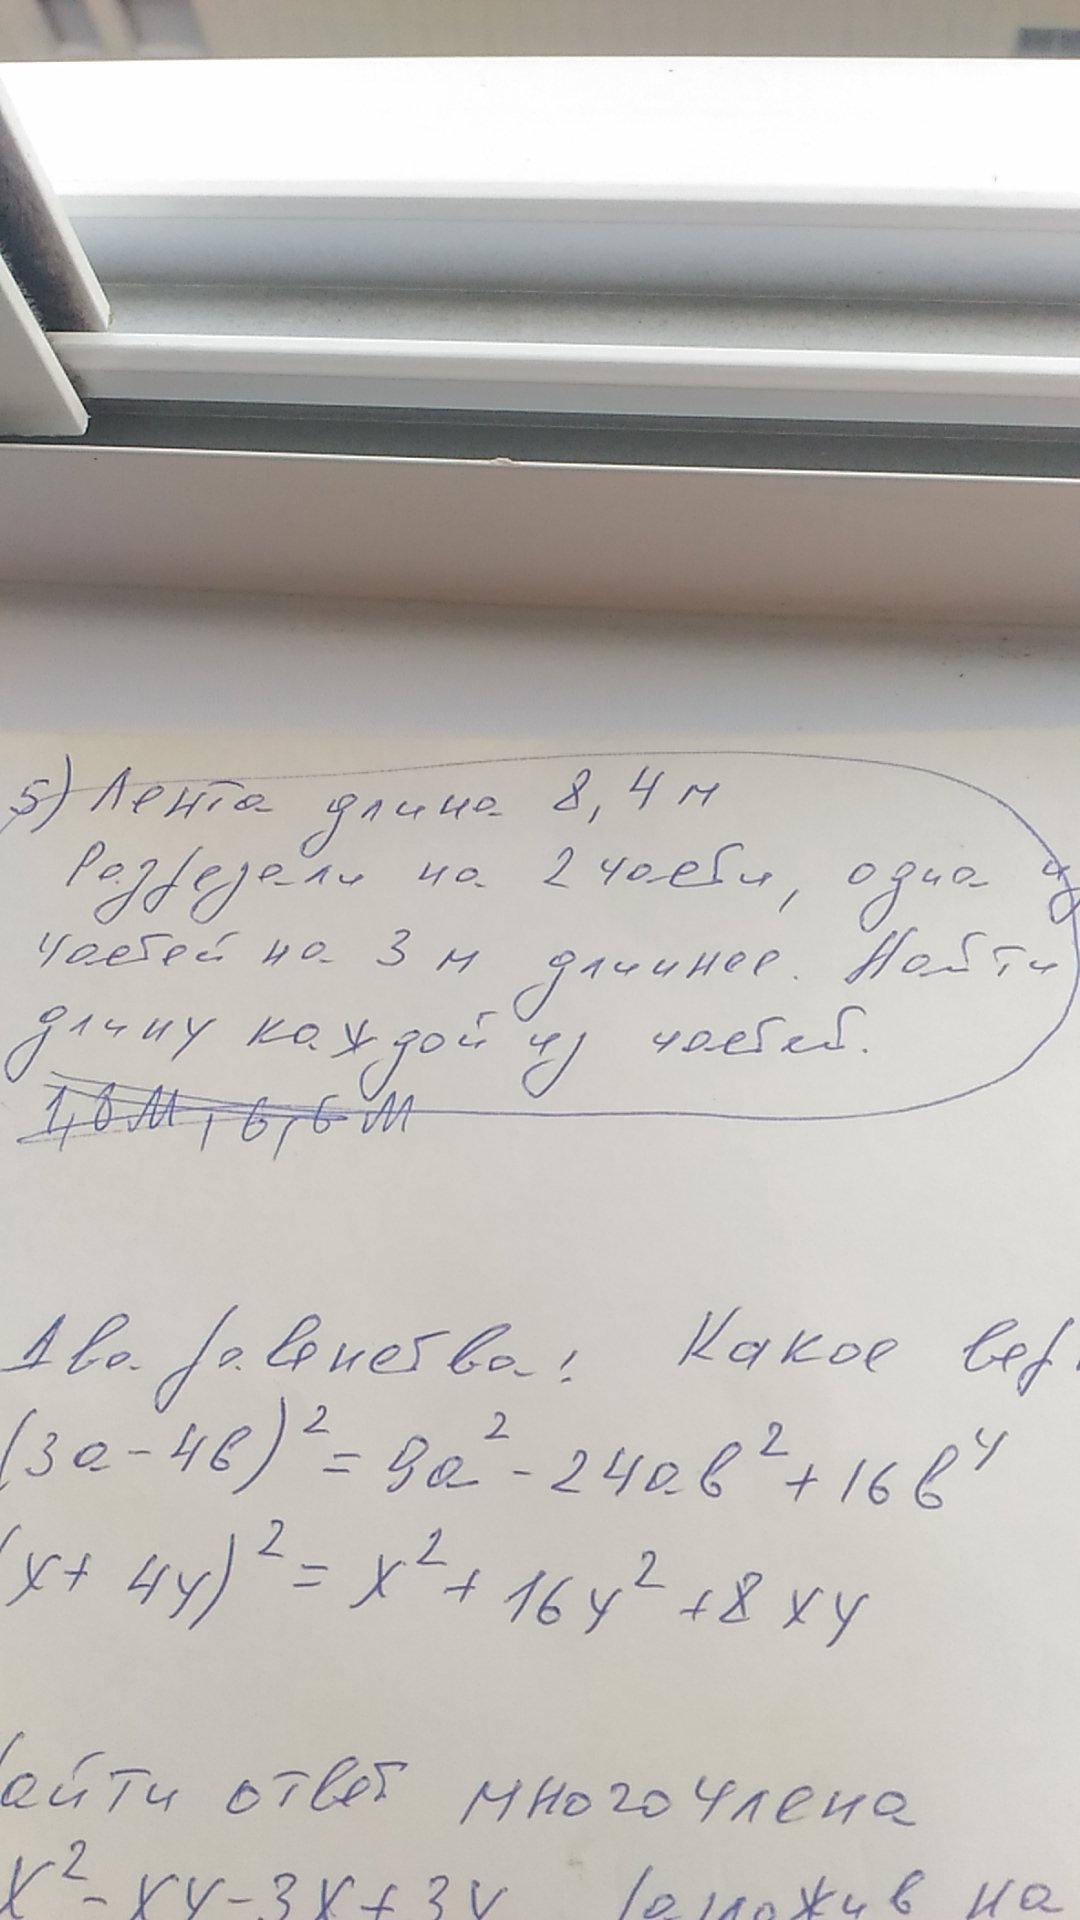 5) Лента длина 8,4 м
Разрезали на 2 части, одна из
частей на 3 м длиннее. Найти
длину каждой из частей.
1,8 м, 6,6 м
Два равенства: Какое вер
(3а-4в)²=9а²-24ав²+16в⁴
(х+ 4у)²=х²+16у²+8ху
Найти ответ многочлена
х²-ху-3х+3у разложив на